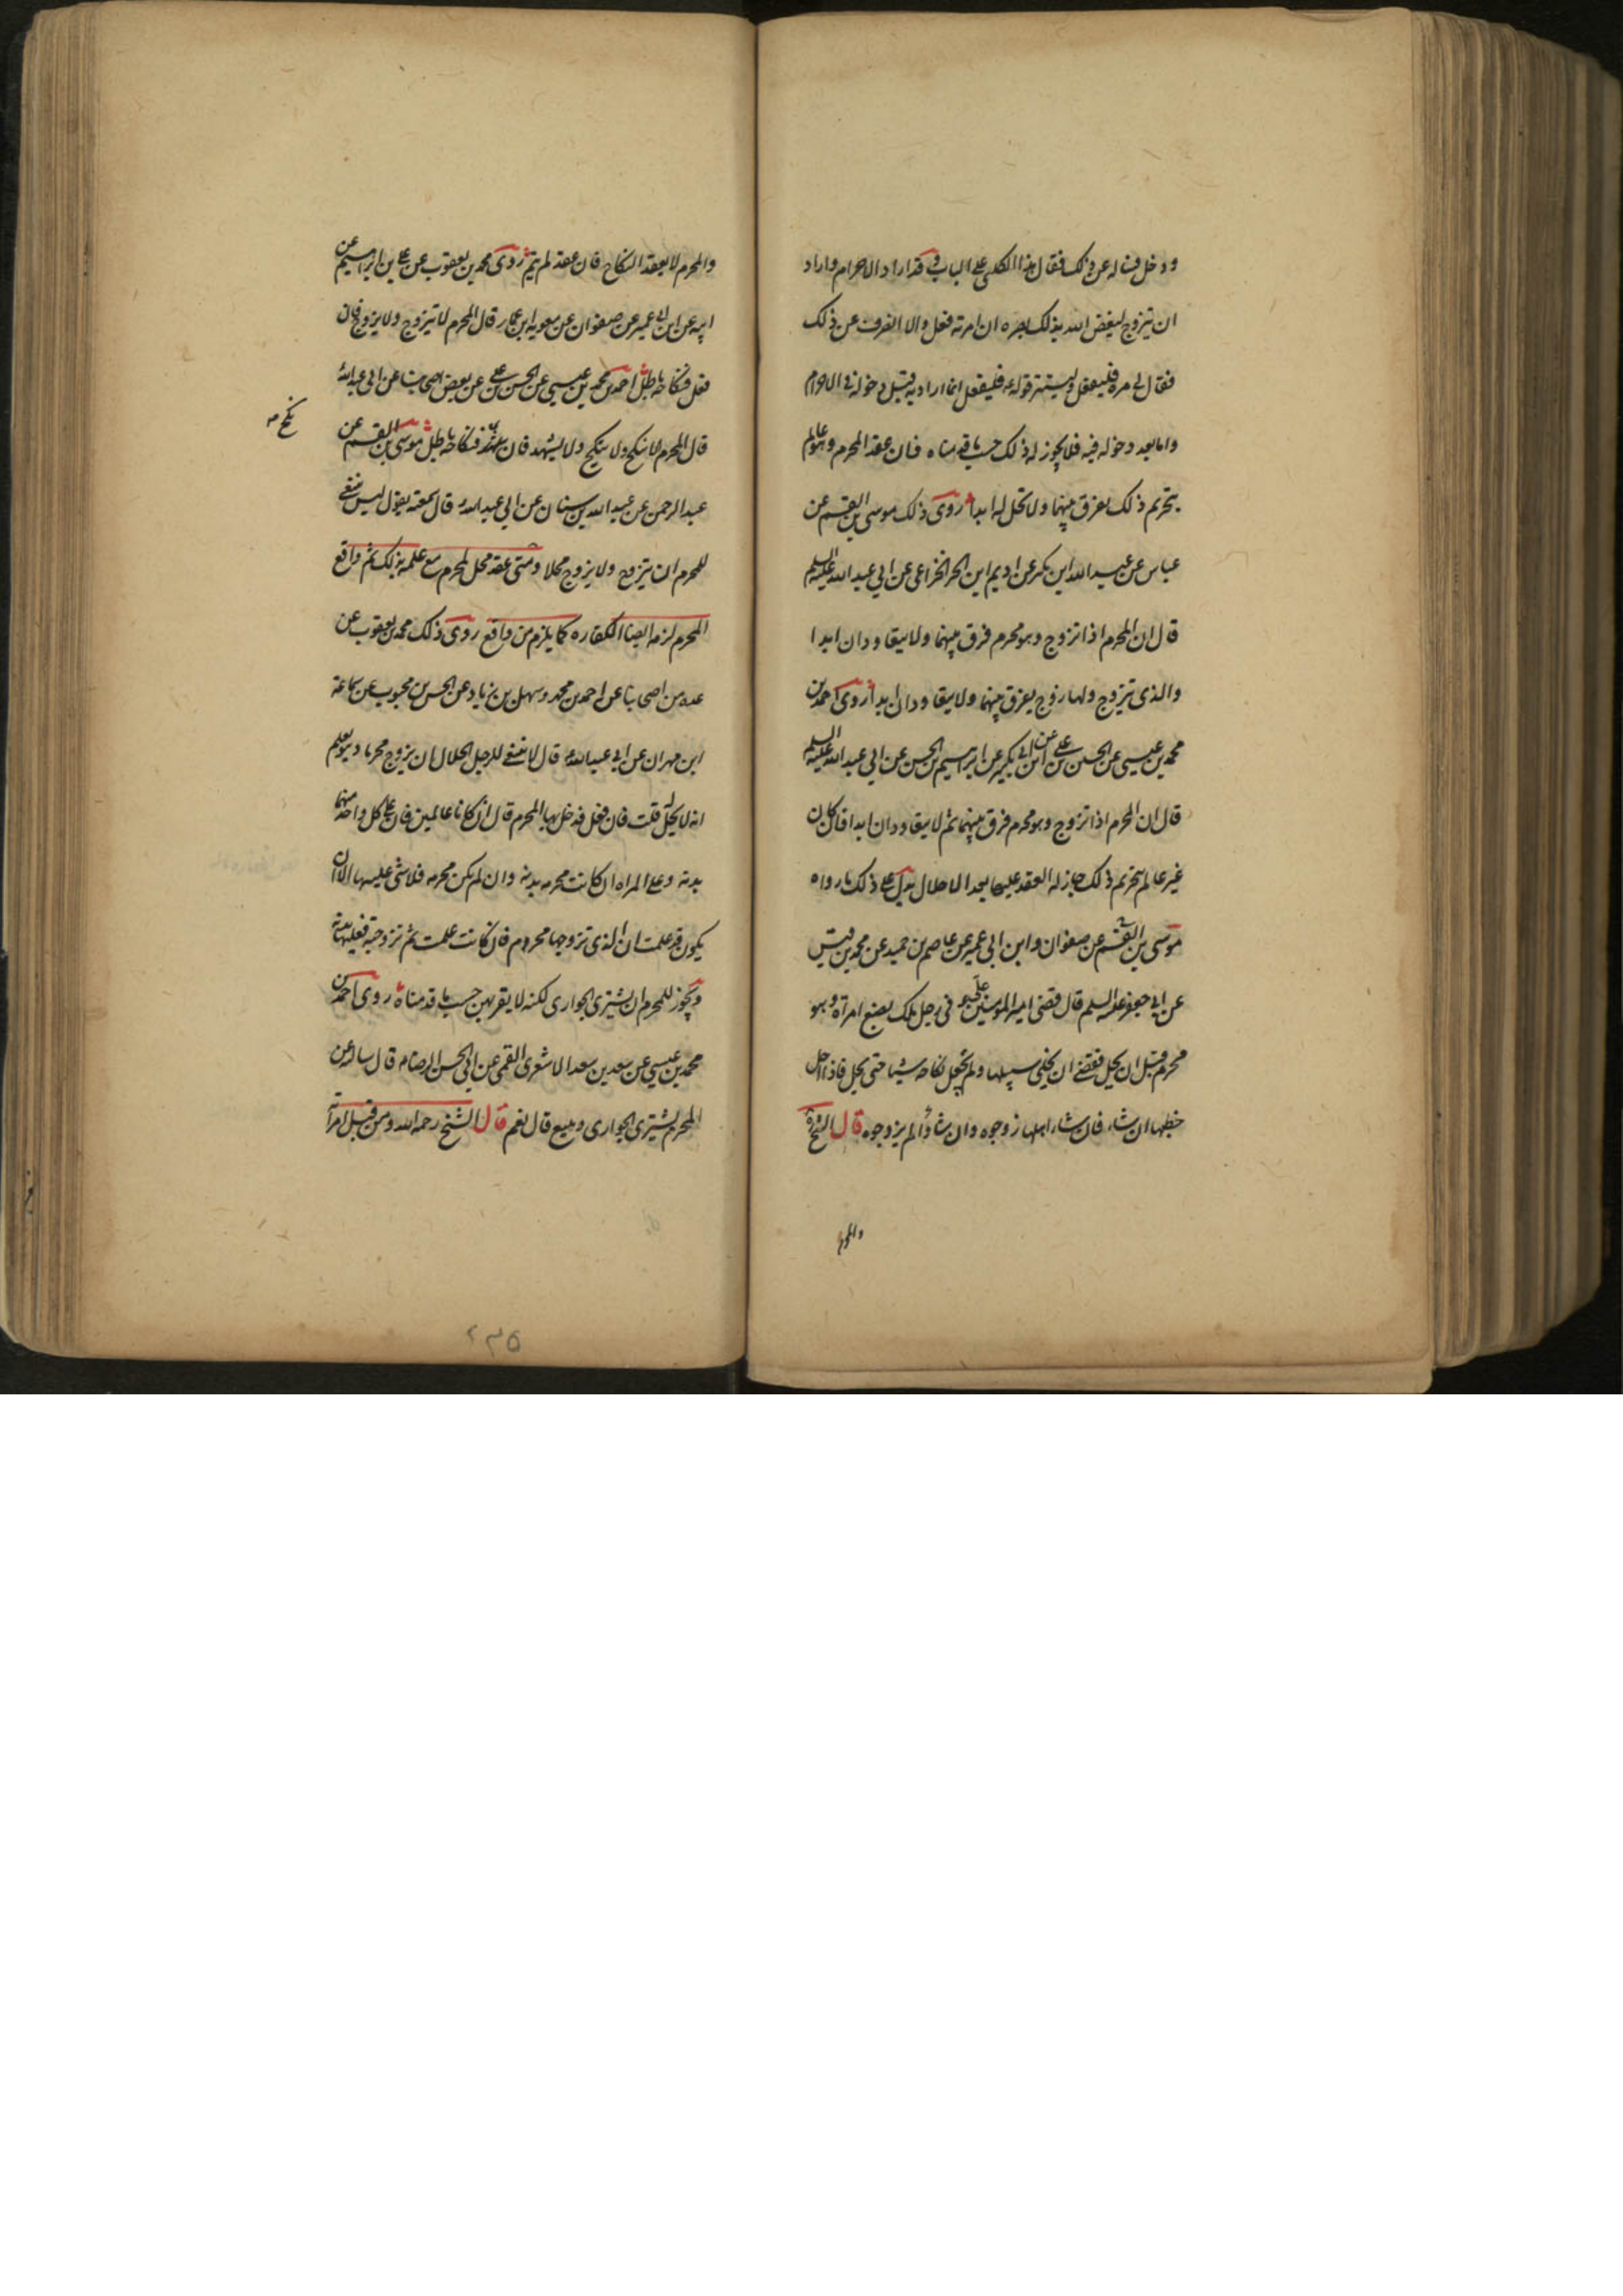 ودخل فساله عن ذلك فقال هذا الكلبي على الباب وقد اراد الاحرام واراد
ان يتزوج ليغض الله بذلك بصره ان امرته فعل والا انصرف عن ذلك
فقال لي مره فليفعل وليستتر قوله ع فليفعل انما اراد به قبل دخوله في الاحرام
واما بعد دخوله فيه فلا يجوز له ذلك حسب ما قدمناه فان عقد المحرم وهو عالم
بتحريم ذلك يفرق بينهما ولا تحل له ابدا روى ذلك موسى بن القسم عن
عباس عن عبد الله ابن بكير عن اديم ابن الحر الخزاعي عن ابي عبد الله عليه السلم
قال ان المحرم اذا تزوج وهو محرم فرق بينهما ولا يتعاودان ابدا
والذي يتزوج ولها زوج يفرق بينهما ولا يتعاودان ابدا روى احمد بن
محمد بن عيسى عن الحسن بن علي عن ابن ابي بكير عن ابراهيم بن الحسن عن ابي عبد الله عليه السلم
قال ان المحرم اذا تزوج وهو محرم فرق بينهما ثم لا يتعاودان ابدا فان كان
غير عالم بتحريم ذلك جاز له العقد عليها بعد الاحلال يدل على ذلك ما رواه
موسى بن القسم عن صفوان وابن ابي عمير عن عاصم بن حميد عن محمد بن قيس
عن ابي جعفر عليه السلم قال قضى امير المومنين في رجل ملك بضع امراة وهو
محرم قبل ان يحل فقضى ان يخلي سبيلها ولم يجعل نكاحه شيئا حتى يحل فاذا احل
خطبها ان شاء فان شاء اهلها زوجوه وان شاؤا لم يزوجوه قال الشيخ ره
والمحرم
والمحرم لا يعقد النكاح فان عقد لم يتم روى محمد بن يعقوب عن علي بن ابراهيم عن
ابيه عن ابن ابي عمير عن صفوان عن معويه ابن عمار قال المحرم لا يتزوج ولا يزوج فان
فعل فنكاحه باطل احمد بن محمد بن عيسى عن الحسن بن علي عن بعض اصحابنا عن ابي عبد الله ع
قال المحرم لا ينكح ولا ينكح ولا يشهد فان نكاحه باطل موسى بن القسم عن
نكح
عبد الرحمن عن عبد الله بن سنان عن ابي عبد الله ع قال سمعته يقول ليس ينبغي
للمحرم ان يتزوج ولا يزوج محلا ومتى عقد محل لمحرم مع علمه بذلك ثم واقع
المحرم لزمه ايضا الكفاره كما يلزم من واقع روى ذلك محمد بن يعقوب عن
عده من اصحابنا عن احمد بن محمد وسهل بن زياد عن الحسن بن محبوب عن سماعة
ابن مهران عن ابي عبد الله ع قال لا ينبغي للرجل الحلال ان يزوج محرما وهو يعلم
انه لا يحل له قلت فان فعل فدخل بها المحرم قال ان كانا عالمين فان على كل واحد منهما
بدنه وعلى المراه ان كانت محرمه بدنه وان لم تكن محرمه فلا شي عليها الا ان
يكون قد علمت ان الذي تزوجها محرم فان كانت علمت ثم تزوجته فعليها بدنة
ويجوز للمحرم ان يشتري الجواري لكنه لا يقربهن حسب ما قدمناه روى احمد بن
محمد بن عيسى عن سعد بن سعد الاشعري القمي عن ابي الحسن الرضا ع قال سالته عن
المحرم يشتري الجواري ويبيع قال نعم قال الشيخ رحمه الله ومن قبل امراته
٢٣٥